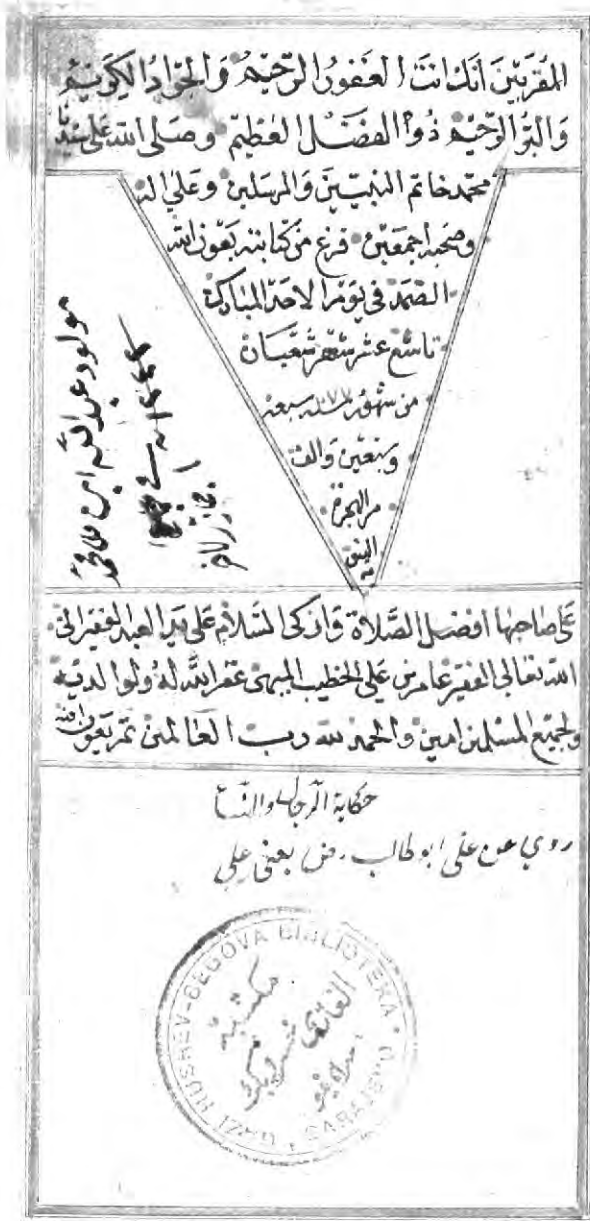 المقربين انك انت الغفور الرحيم والجواد الكريم
والبر الرحيم ذو الفضل العظيم وصلى الله على سيدنا
محمد خاتم النبيين والمرسلين وعلى اله
وصحبه اجمعين فرغ من كتابته بعون الله
الصمد في يوم الاحد المباركة
تاسع عشر شهر شعبان
من شهور سنة ١٠٧٧ سبعه
وسبعين والف
من الهجرة
النبوية
مولود عبد الله ابن
على صاحبها افضل الصلاة وازكى السلام على يد العبد الفقير الى
الله تعالى الفقير عامر بن علي الخطيب غفر الله له ولوالديه
ولجميع المسلمين امين والحمد لله رب العالمين تم بعون الله
حكاية الرجال والنسا
روي عن علي ابو طالب رض يعني علي
GAZI HUSREV-BEGOVA BIBLIOTEKA • SARAJEVO
مكتبة
الغازي
خسرو بك
سرايفو